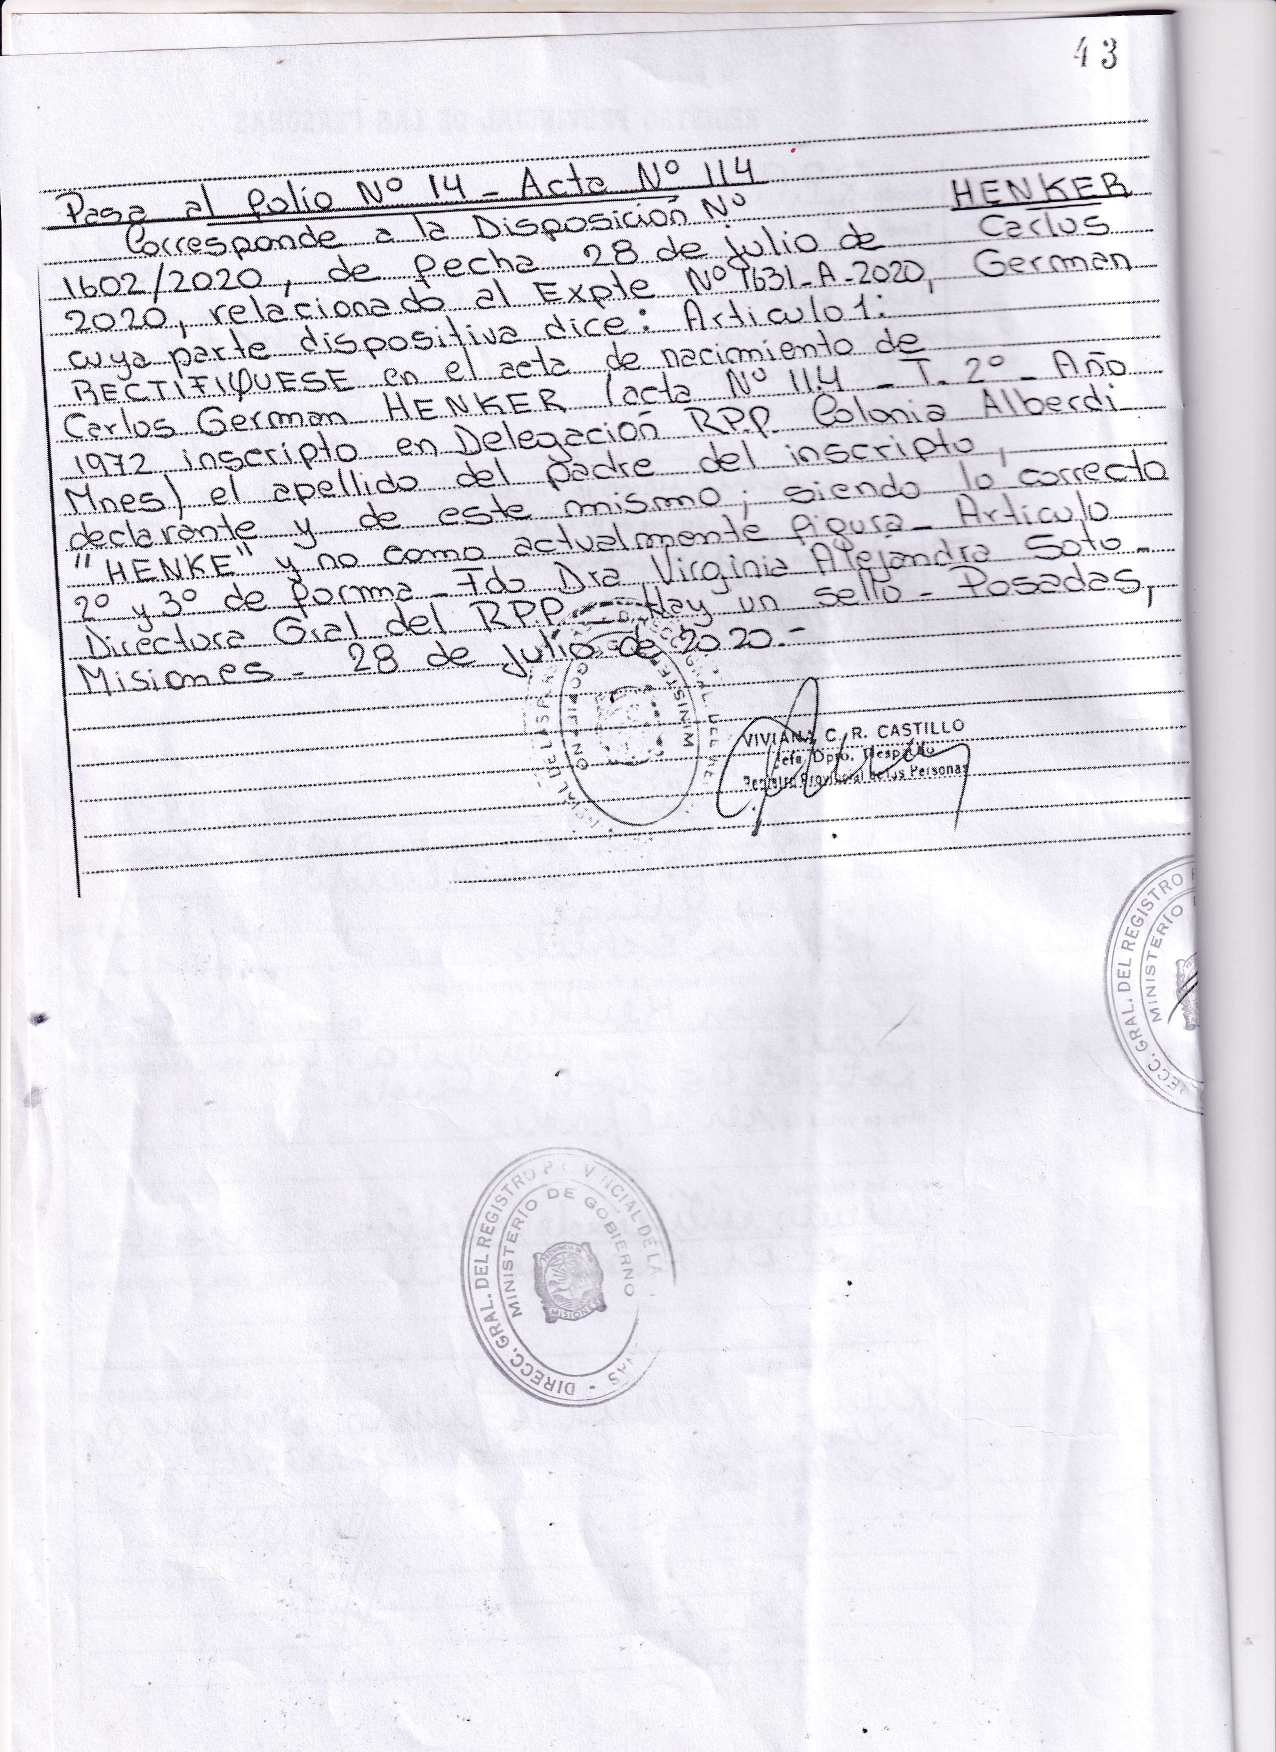 43
Pasa al folio Nº 14 - Acta Nº 114
HENKER
Carlos
German
Corresponde a la Disposición Nº
1602/2020, de fecha 28 de Julio de
2020, relacionado al Expte Nº 1631-A-2020,
cuya parte dispositiva dice: Articulo 1:
RECTIFIQUESE en el acta de nacimiento de
Carlos German HENKER (acta Nº 114 - T. 2º - Año
1972 inscripto en Delegación R.P.P. Colonia Alberdi
Mnes) el apellido del padre del inscripto,
declarante y de este mismo; siendo lo correcto
"HENKE" y no como actualmente figura - Artículo
2º y 3º de forma - Fdo Dra Virginia Alejandra Soto -
Directora Gral del R.P.P. - Hay un sello - Posadas,
Misiones - 28 de Julio de 2020.-
VIVIANA C. R. CASTILLO
Jefa Dpto. Despacho
Registro Provincial de las Personas
DIRECC. GRAL. DEL REGISTRO
MINISTERIO
DIRECC. GRAL. DEL REGISTRO PROVINCIAL DE LA
MINISTERIO DE GOBIERNO
PROVINCIA DE
MISIONES